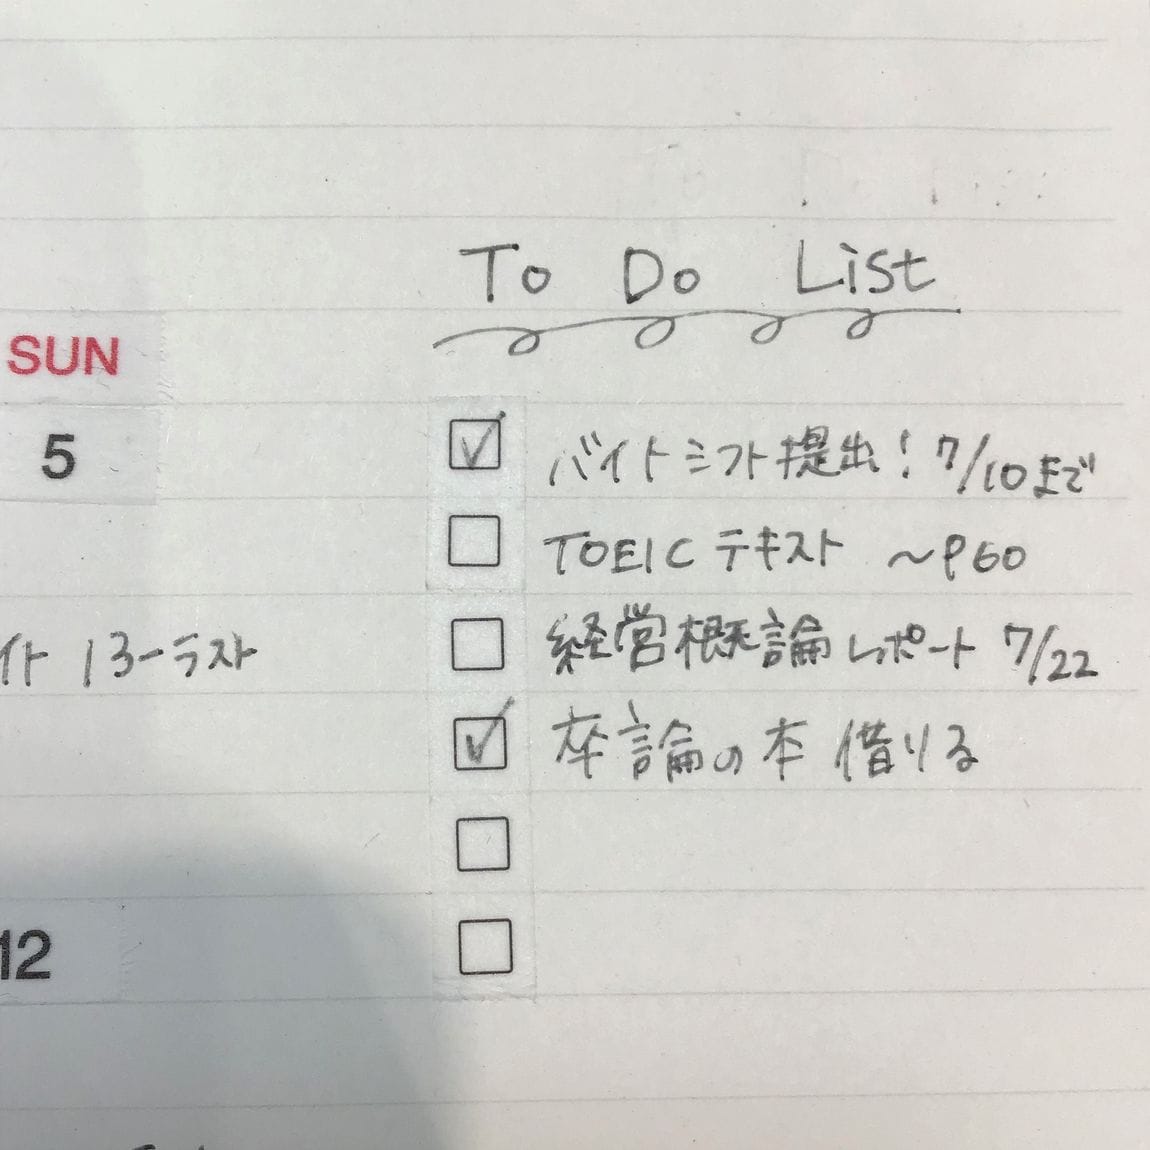 To Do List
SUN
5
バイトシフト提出! 7/10まで
TOEIC テキスト ~P60
経営概論レポート 7/22
イト 13-ラスト
卒論の本 借りる
12